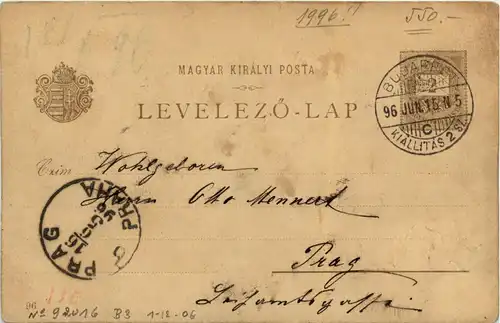 1996!
550.-
MAGYAR KIRÁLYI POSTA
LEVELEZŐ-LAP
BUDAPEST
96 JUN. 15. N 5
C
KIÁLLÍTÁS 2 SZ.
Czim
Wohlgeboren
Herrn Otto Mennert
Prag
PRAG PRAHA
Nº 92016 B3 1-12-06